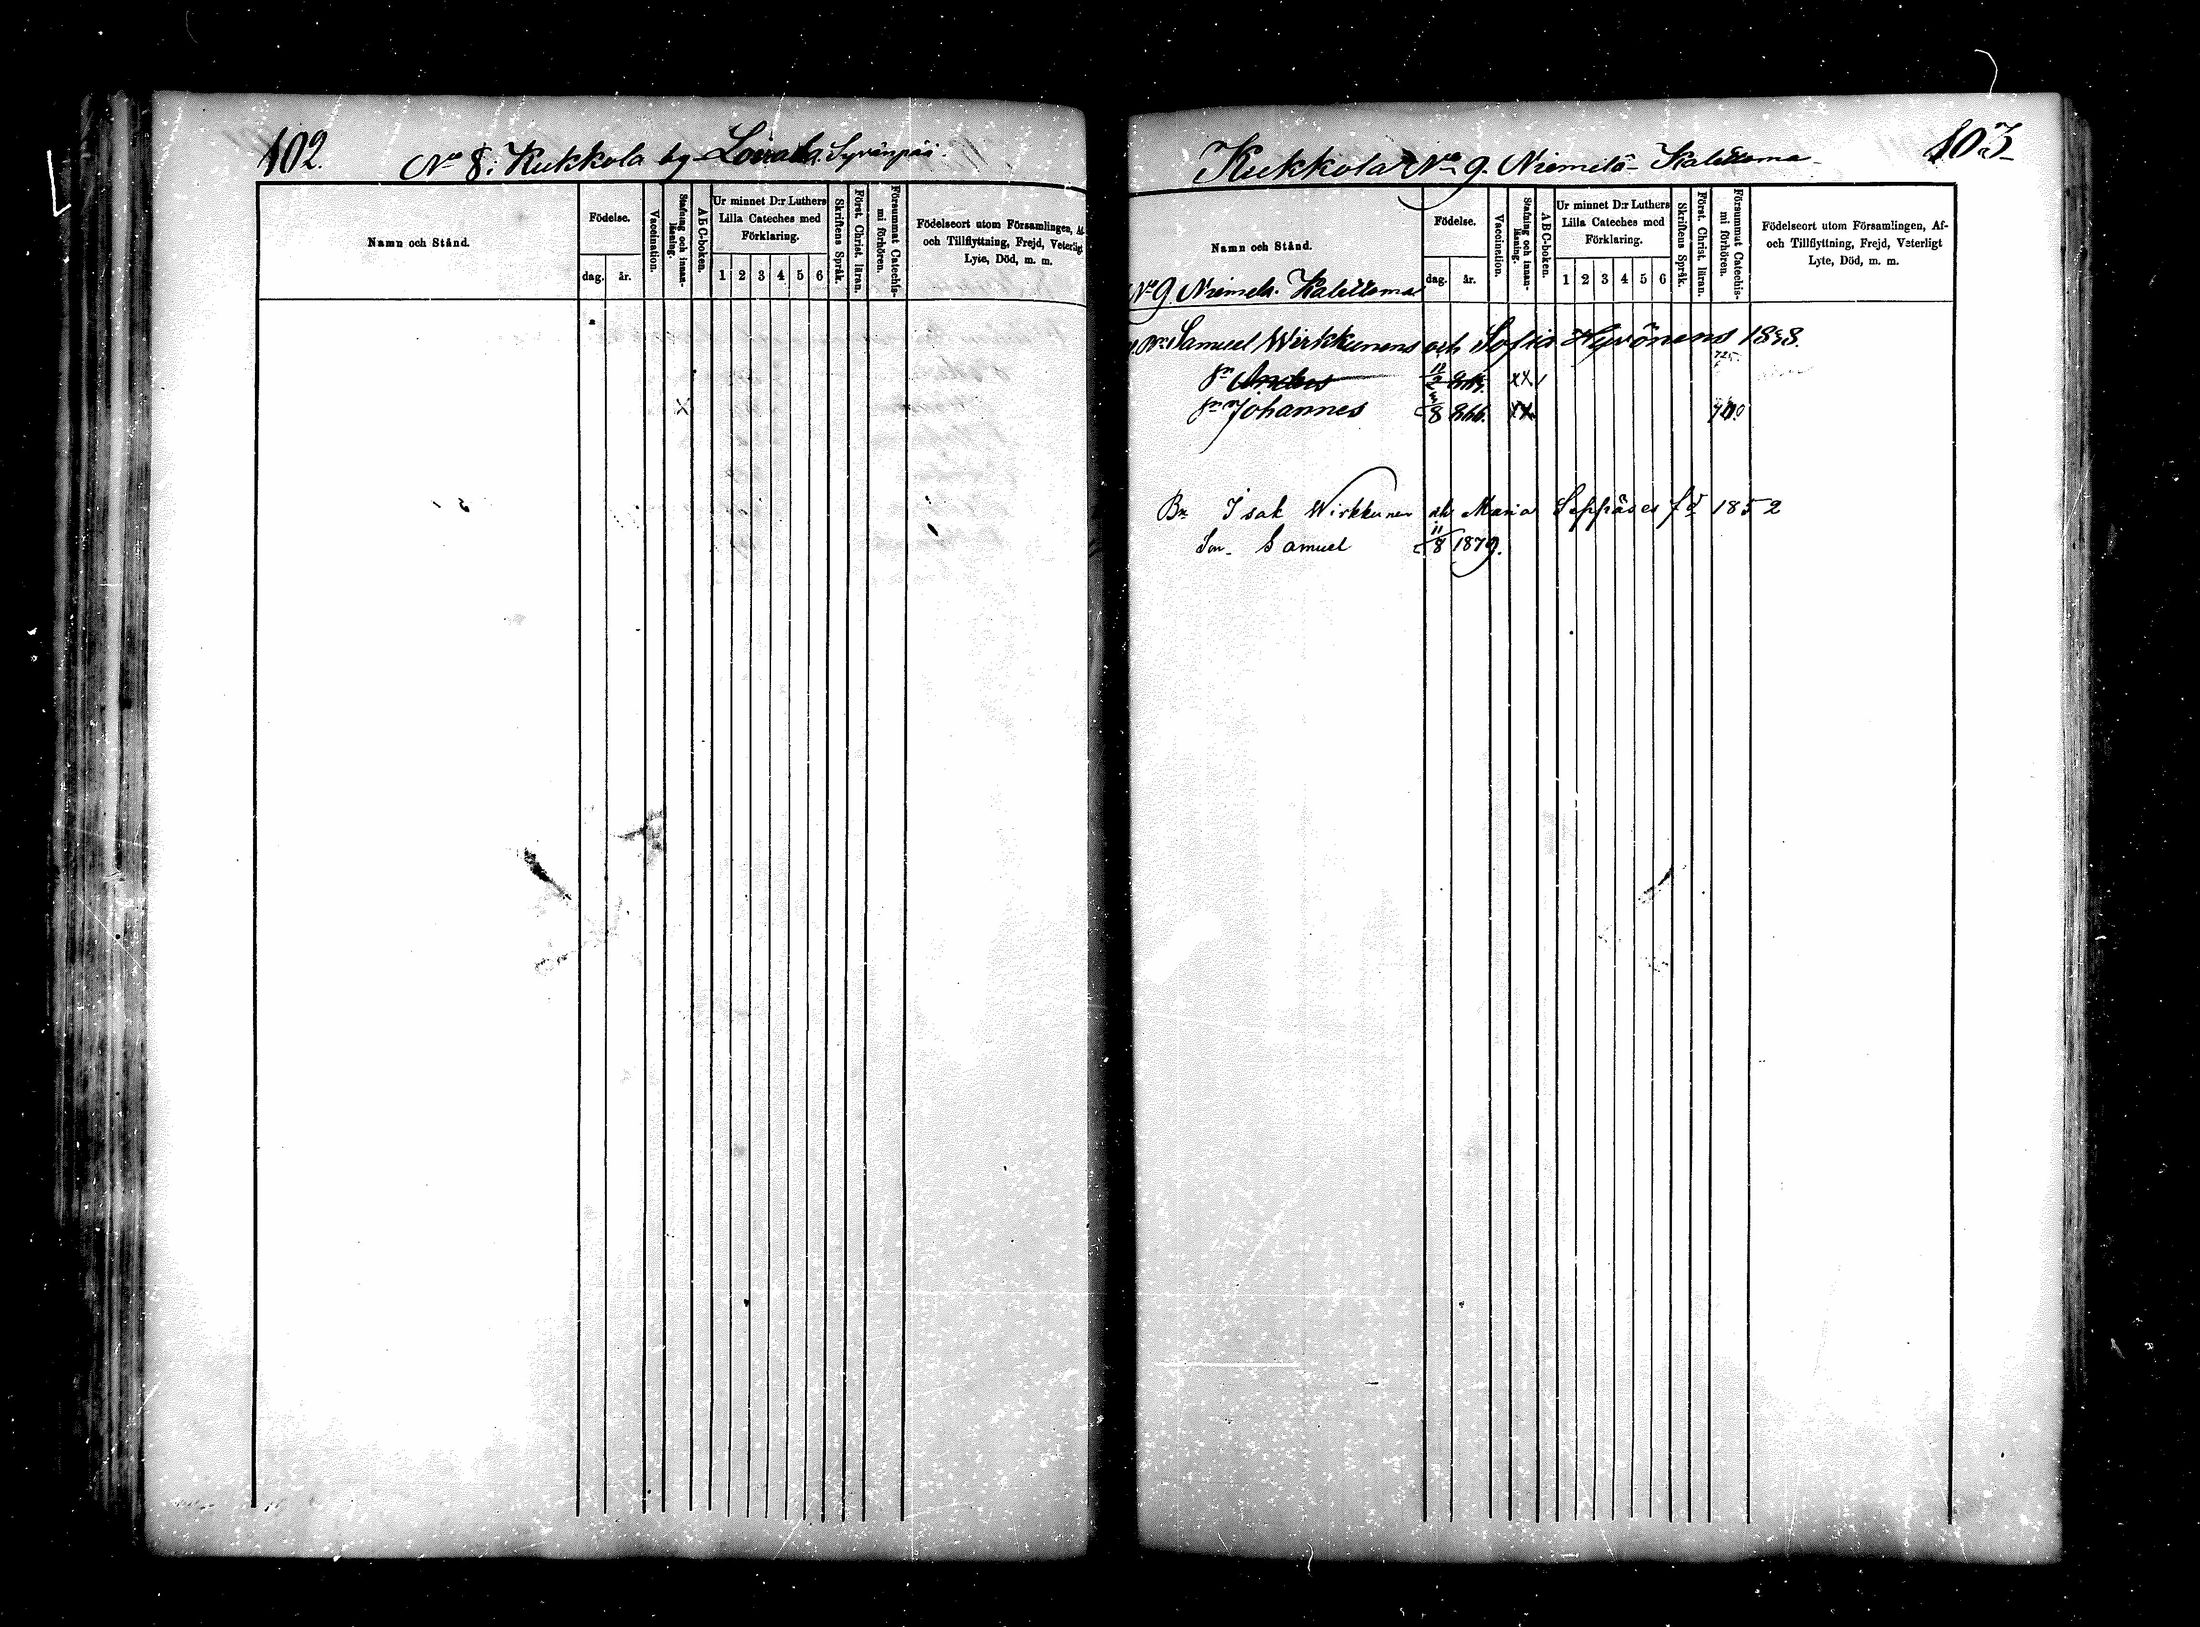 102.
No 8. Kukkola by Syvänpää.
Namn och Stånd.
Födelse.
dag. år.
Vaccination.
Stafning och innan-läsning.
A B C-boken.
Ur minnet D:r Luthers
Lilla Cateches med
Förklaring.
1 2 3 4 5 6
Skriftens Språk.
Först. Christ. läran.
Försummat Catechis-
mi förhören.
Födelseort utom Församlingen, Af-
och Tillflyttning, Frejd, Veterligt
Lyte, Död, m. m.
X
103
Kukkola No 9. Niemelä
Namn och Stånd.
Födelse.
dag. år.
Vaccination.
Stafning och innan-läsning.
A B C-boken.
Ur minnet D:r Luthers
Lilla Cateches med
Förklaring.
1 2 3 4 5 6
Skriftens Språk.
Först. Christ. läran.
Försummat Catechis-
mi förhören.
Födelseort utom Församlingen, Af-
och Tillflyttning, Frejd, Veterligt
Lyte, Död, m. m.
No 9 Niemelä.
Samuel Wirkkunens och Sofia Hyvönens
Sn Anders 11/2 XX
Sn Johannes 8 866. XX
Bn Isak Wirkkunen och Maria Seppäs fd 1852
Son Samuel 11/8 1879.